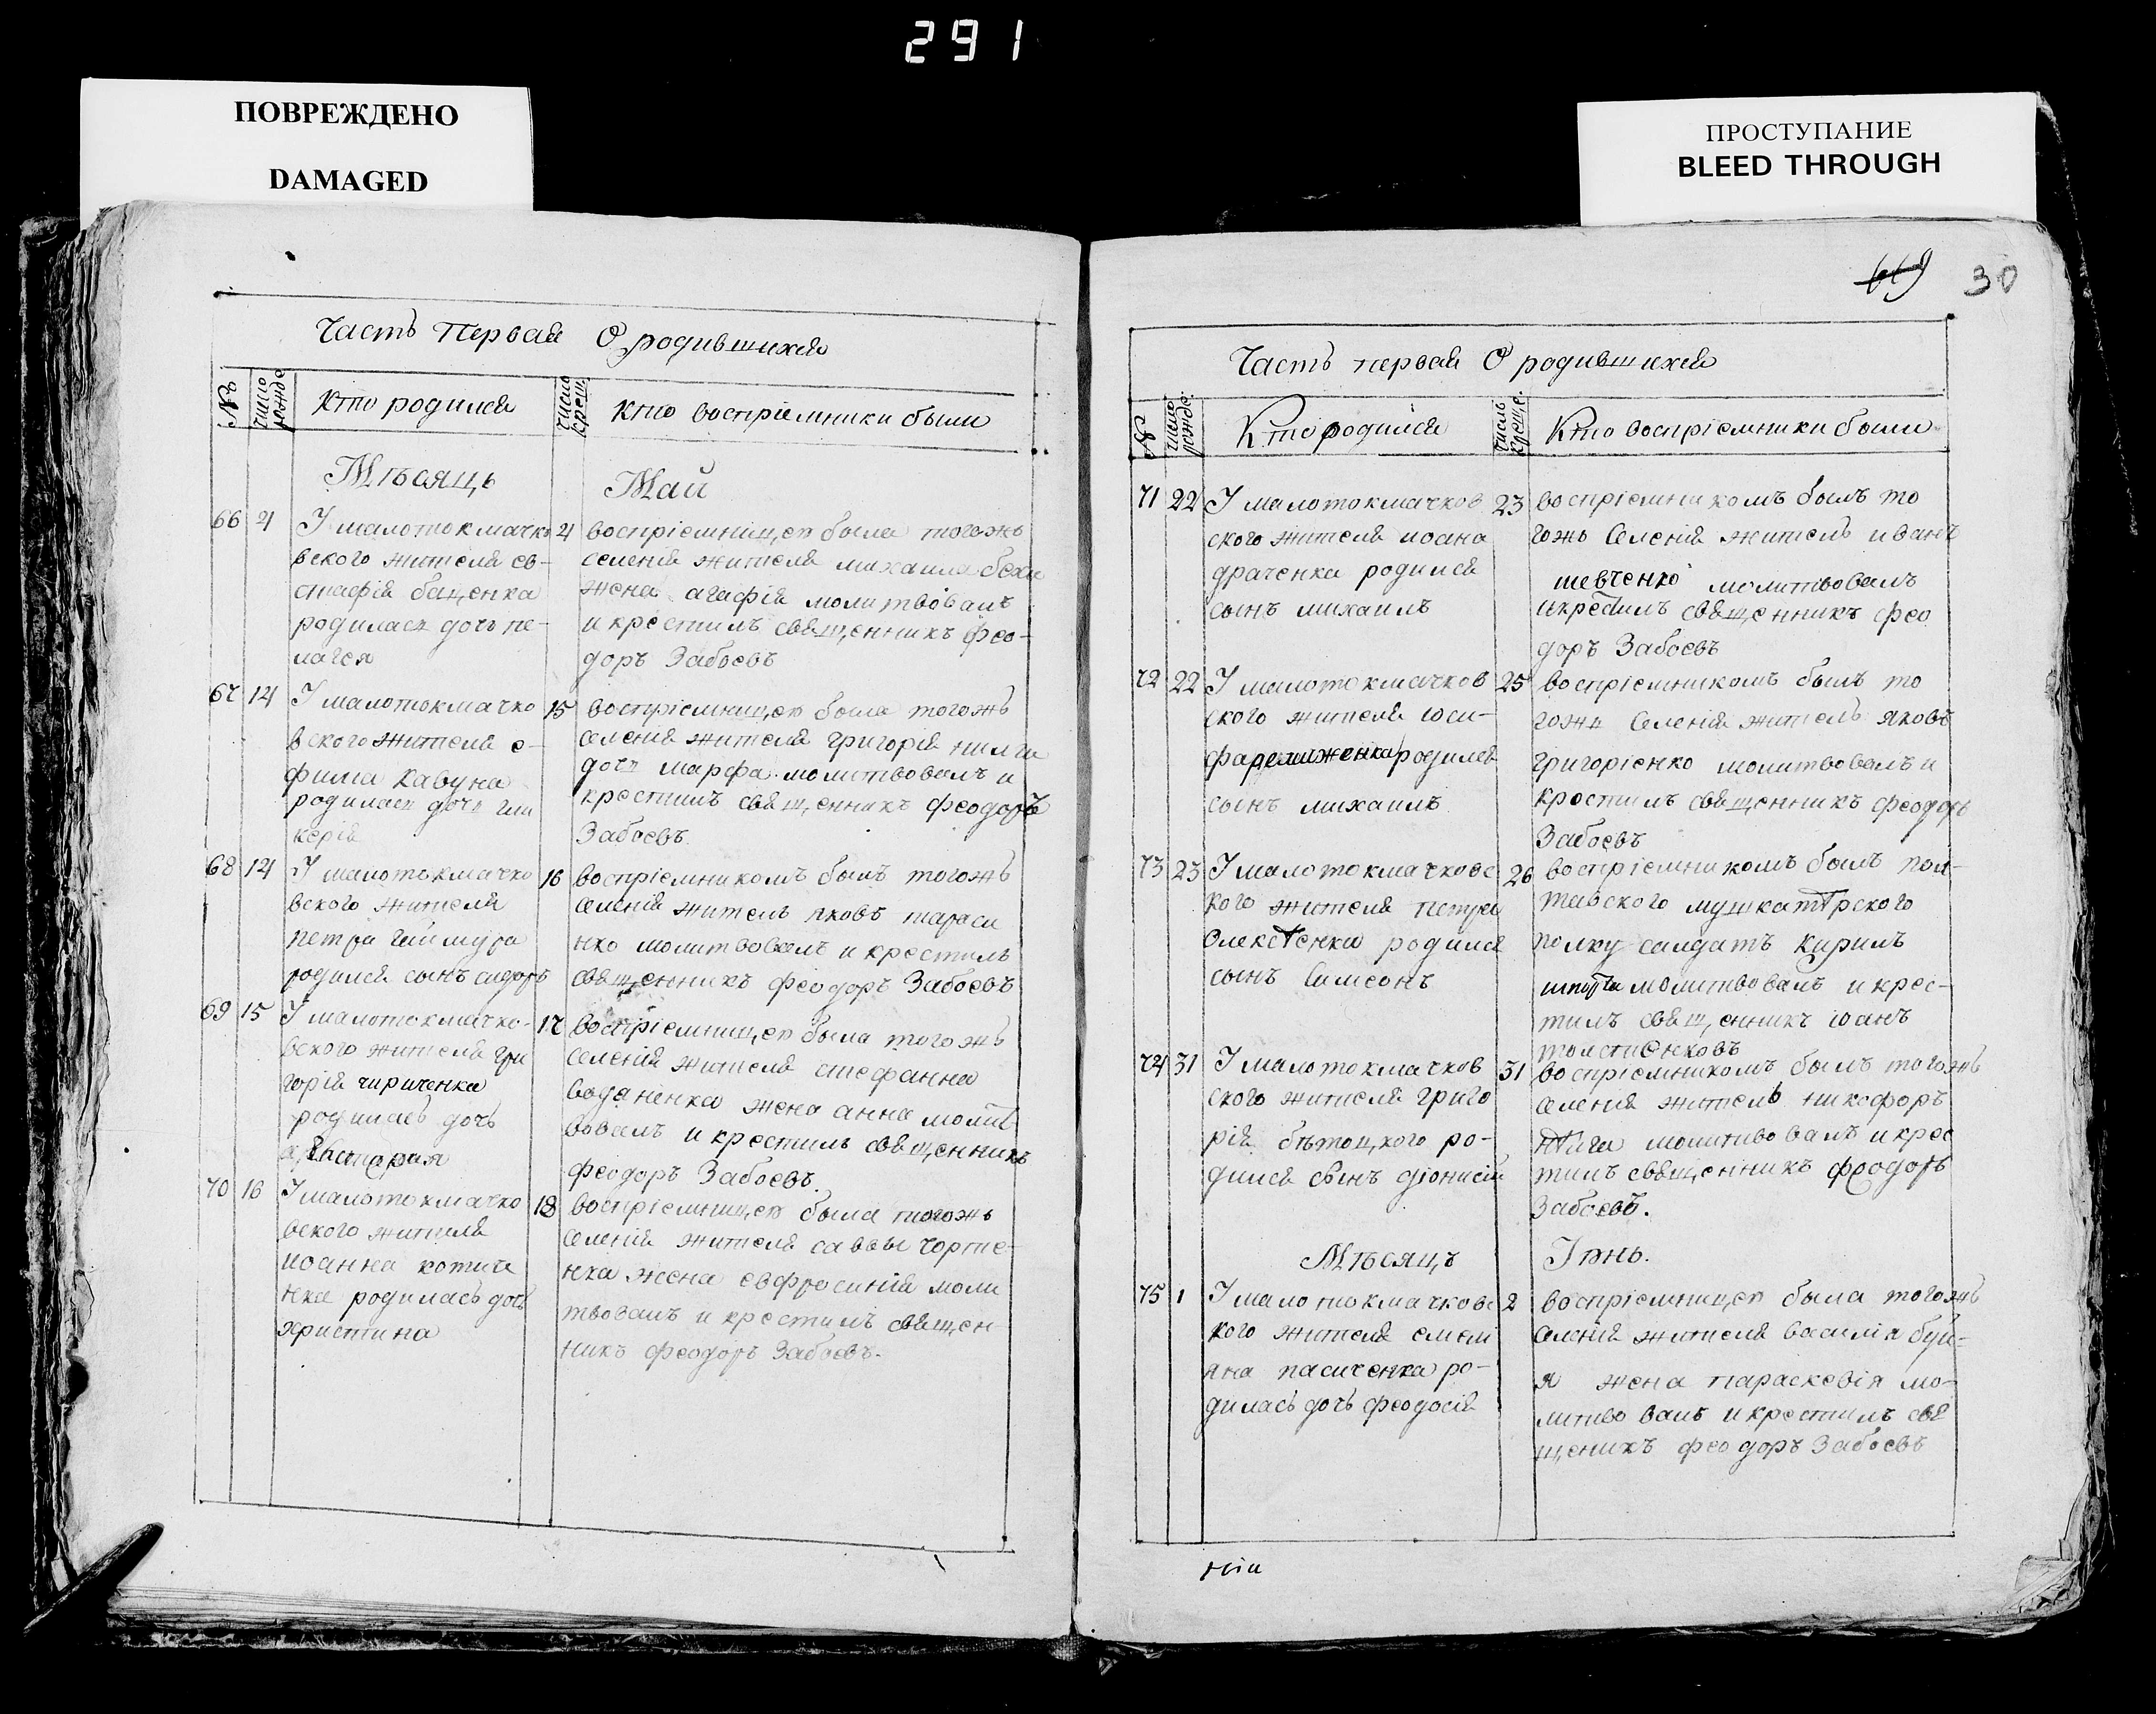 291
ПОВРЕЖДЕНО
DAMAGED
ПРОСТУПАНИЕ
BLEED THROUGH
30
Часть первая О родившихся
№
число рожде
Кто родился
число крещ.
кто воспріемники были
Мѣсяць Май
66 4
У малотокмачко
вского жителя ев-
стафія баценка
родилась дочь пе-
лагея
4
воспріемницею была тогожъ
селенія жителя михаила беха
жена агафія молитвовалъ
и крестилъ священникъ фео-
доръ Забоевъ
67 14
У малотокмачко
вского жителя е-
фима кавуна
родилась дочь гли
керія
15
воспріемницею была тогожъ
селенія жителя григорія
дочь марфа молитвовалъ и
крестилъ священникъ феодоръ
Забоевъ.
68 14
У малотокмачко
вского жителя
петра гаймура
родился сынъ сидоръ
16
воспріемникомъ былъ тогожъ
селенія житель яковъ тарасе
нко молитвовалъ и крестилъ
священникъ феодоръ Забоевъ
69 15
У малотокмачко-
вского жителя гри
горія чириченка
родилась дочь
17
воспріемницею была тогожъ
селенія жителя стефанна
водяненка жена анна молит
вовалъ и крестилъ священникъ
феодоръ Забоевъ.
70 16
У малотокмачко
вского жителя
иоанна котиче
нка родилась дочь
христина
18
воспріемницею была тогожъ
селенія жителя саввы чорне-
нка жена евфросинія моли
твовалъ и крестилъ священ
никъ феодоръ Забоевъ.
Часть первая О родившихся
№
число рожде.
Кто родился
число крещ.
Кто воспріемники были
71 22
У малотокмачков
ского жителя иоана
драченка родился
сынъ михаилъ
23
воспріемникомъ былъ то
гожъ селенія житель иванъ
шевченко молитвовалъ
и крестилъ священникъ фео
доръ Забоевъ
72 22
У малотокмачков
ского жителя іоси-
фа родился
сынъ михаилъ
25
воспріемникомъ былъ то
гожъ селенія житель яковъ
григоріенко молитвовалъ и
крестилъ священникъ феодоръ
Забоевъ
73 23
У малотокмачковс
кого жителя петра
олексѣенка родился
сынъ симеонъ
26
воспріемникомъ былъ пол-
тавского мушкатѣрского
полку салдатъ кирилъ
молитвовалъ и крес-
тилъ священникъ іоанъ
74 31
У малотокмачков
ского жителя григо
рія бѣтоцкого ро-
дился сынъ діонисій
31
воспріемникомъ былъ тогожъ
селенія житель никофоръ
молитвовалъ и крес
тилъ священникъ феодоръ
Забоевъ.
Мѣсяцъ Іюнь.
75 1
У малотокмачковс
кого жителя емелі
яна пасиченка ро-
дилась дочь феодосія
2
воспріемницею была тогожъ
селенія жителя василія буй-
я жена параскевія мо-
литвовалъ и крестилъ свя
щеникъ феодоръ Забоевъ